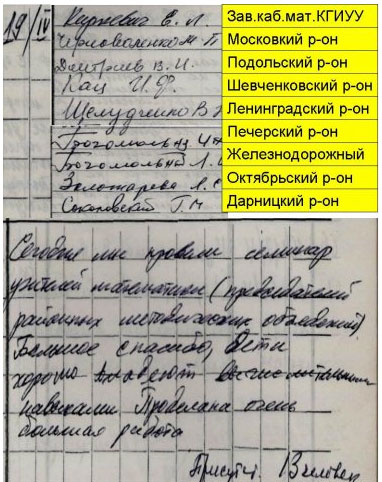 19/IV
Карпевич Е. Л. Зав.каб.мат.КГИУУ
Черноваленко М П Московкий р-он
Дмитриев В. И. Подольский р-он
Кац И. Ф. Шевченковский р-он
Шелудченко В Ленинградский р-он
Богомольный Печерский р-он
Богомольный Л. Железнодорожный
Золотарева Л. С Октябрьский р-он
Соколовский Г. М Дарницкий р-он
Сегодня мы провели семинар
учителей математики (председателей
районных методических объединений).
Большое спасибо, дети
хорошо владеют вычислительными
навыками. Проделана очень
большая работа
Присутст. 13 человек